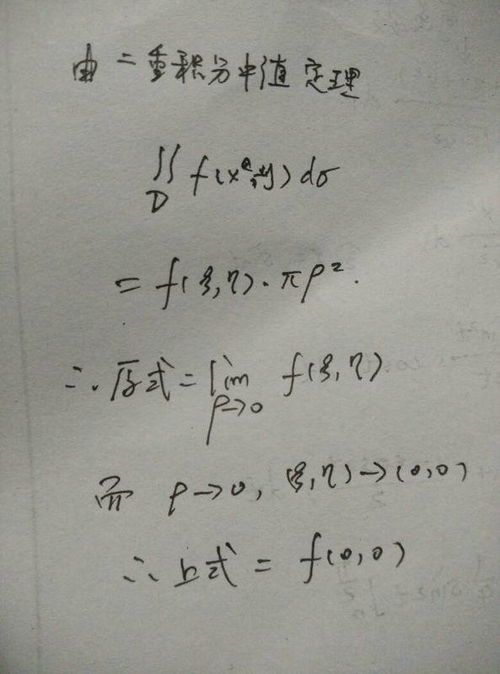 由二重积分中值定理
∬_D f(x,y)dσ
= f(ξ,η)·πρ².
∴原式=lim_{ρ→0} f(ξ,η)
而 ρ→0, (ξ,η)→(0,0)
∴上式 = f(0,0)